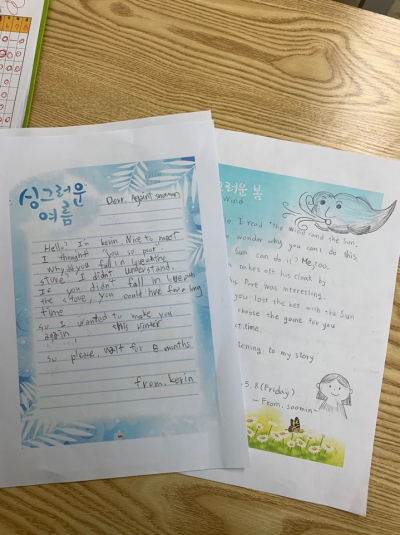 싱그러운
여름
Dear
Hello? I'm kevin Nice to meet
I thought you so poor
Why did you fall in
stove I didn't understand.
If you didn't fall in
the stove, you could live for a long
time
so I wanted to make you
again this winter
so please, wait for 8 months
from. kevin
그러운 봄
Wind
I read the Wind and the Sun.
wonder why you can't do this,
Sun can do it? Me, too.
takes off his cloak by
his Part was interesting.
you lost the bet with the Sun
choose the game for you
xt time.
stening to my story
.5.8(Friday)
-From. soomin-